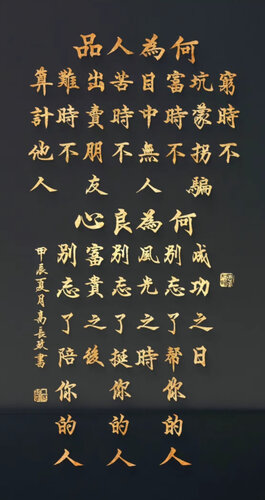 何為人品
窮時不
坑蒙拐騙
富時不
目中無人
苦時不
出賣朋友
難時不
算計他人
何為良心
成功之日
別忘了幫你的人
風光之時
別忘了挺你的人
富貴之後
別忘了陪你的人
甲辰夏月高長政書